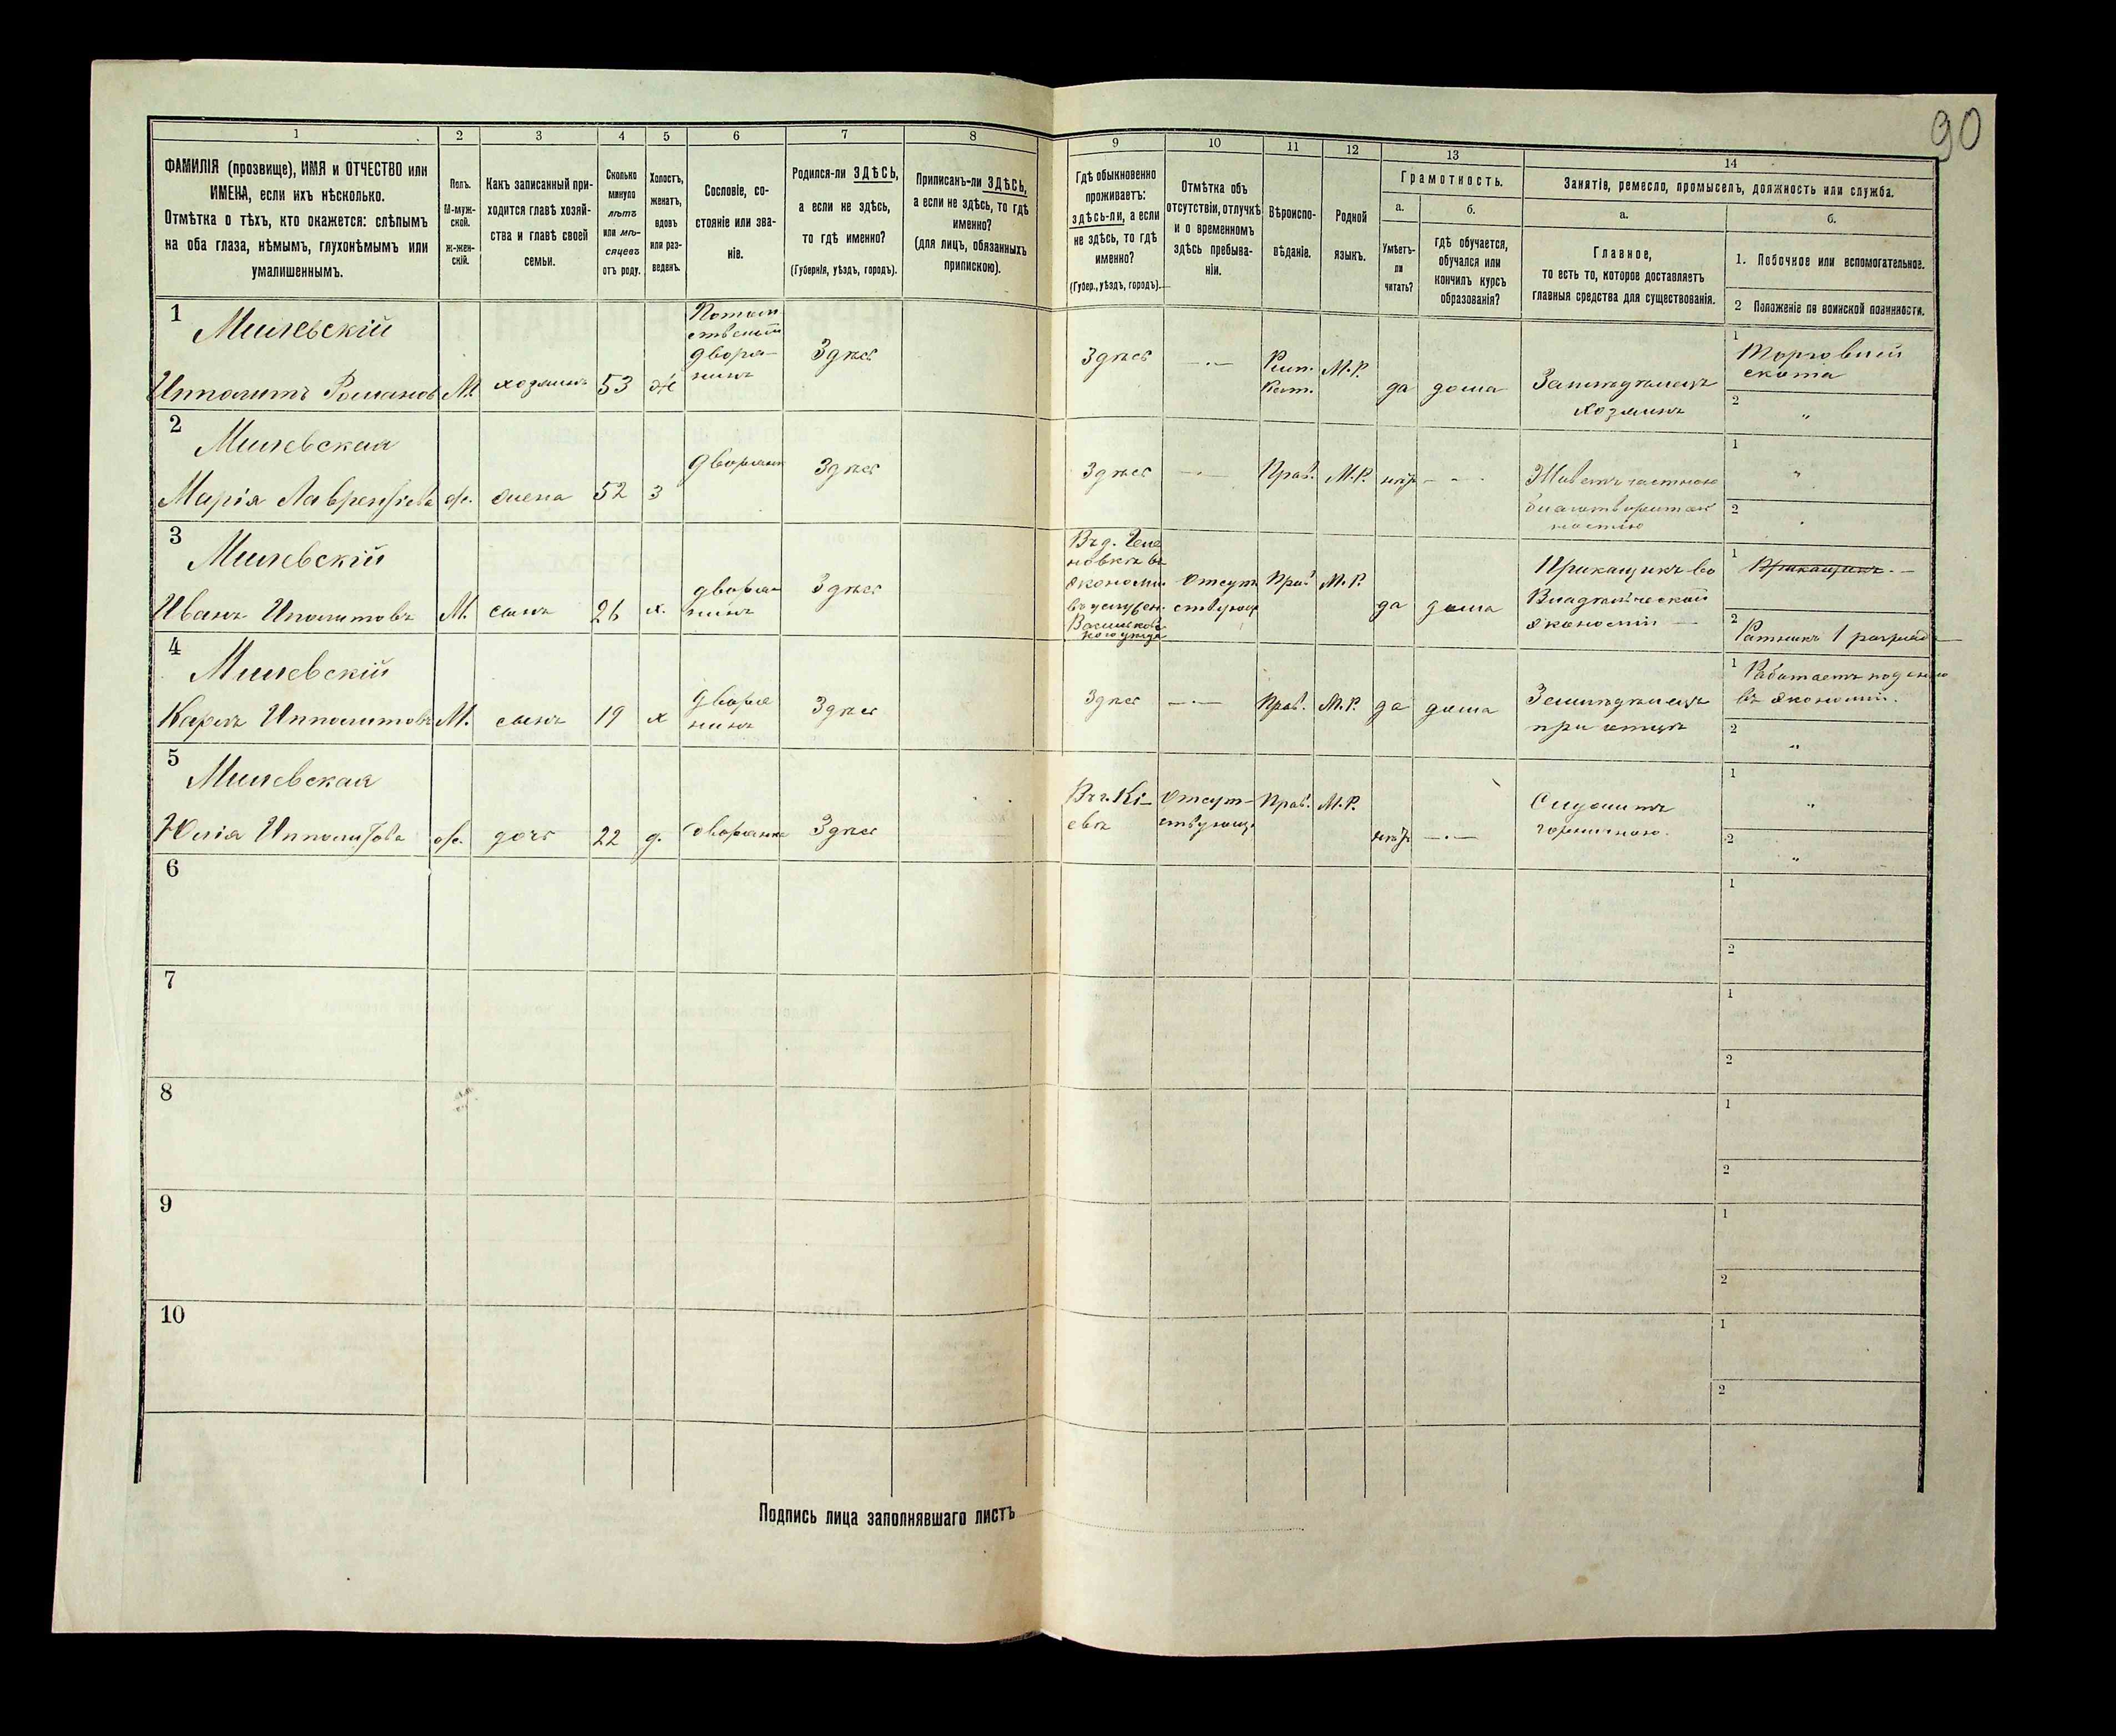 90
1 2 3 4 5 6 7 8 9 10 11 12 13 14
ФАМИЛІЯ (прозвище), ИМЯ и ОТЧЕСТВО или
ИМЕНА, если ихъ нѣсколько.
Отмѣтка о тѣхъ, кто окажется: слѣпымъ
на оба глаза, нѣмымъ, глухонѣмымъ или
умалишеннымъ.
Полъ.
М-муж-
ской.
ж-жен-
скій.
Какъ записанный при-
ходится главѣ хозяй-
ства и главѣ своей
семьи.
Сколько
минуло
лѣтъ
или мѣ-
сяцевъ
отъ роду.
Холостъ,
женатъ,
вдовъ
или раз-
веденъ.
Сословіе, со-
стояніе или зва-
ніе.
Родился-ли ЗДѢСЬ,
а если не здѣсь,
то гдѣ именно?
(Губернія, уѣздъ, городъ).
Приписанъ-ли ЗДѢСЬ,
а если не здѣсь, то гдѣ
именно?
(для лицъ, обязанныхъ
припискою).
Гдѣ обыкновенно
проживаетъ:
здѣсь-ли, а если
не здѣсь, то гдѣ
именно?
(Губер., уѣздъ, городъ).
Отмѣтка объ
отсутствіи, отлучкѣ
и о временномъ
здѣсь пребыва-
ніи.
Вѣроиспо-
вѣданіе.
Родной
языкъ.
Грамотность.
а.
Умѣетъ-
ли
читать?
б.
гдѣ обучается,
обучался или
кончилъ курсъ
образованія?
Занятіе, ремесло, промыселъ, должность или служба.
а.
Главное,
то есть то, которое доставляетъ
главныя средства для существованія.
б.
1. Побочное или вспомогательное.
2 Положеніе по воинской повинности.
1
Милевскій
Ипполитъ Романовъ
М.
хозяинъ
53
ж
Потом
ственный
дворя-
нинъ
Здѣсь
Здѣсь
Рим.
Кат.
М.Р.
да
дома
хозяинъ
1
Торговлей
скота
2
"
2
Милевская
Марія Лаврентьева
ж.
жена
52
з
дворянк
Здѣсь
Здѣсь
Прав.
М.Р.
нѣтъ
Живетъ частною
1
"
2
3
Милевскій
Иванъ Ипполитовъ
М.
сынъ
26
х.
дворя-
нинъ
Здѣсь
экономи
Васильков
кого уѣзда
Отсут
ствующ
Прав
М.Р.
да
дома
Прикащикъ во
экономіи
1
Прикащикъ.
2
Ратникъ 1 разряда
4
Милевскій
Карлъ Ипполитовъ
М.
сынъ
19
х
дворя
нинъ
Здѣсь
Здѣсь
Прав.
М.Р.
да
дома
Земледѣлецъ
при отцѣ
1
Работаетъ поденно
въ экономіи.
2
"
5
Милевская
Юлія Ипполитова
ж.
дочь
22
д.
дворянка
Здѣсь
Въ г. Кі-
евѣ
Отсут-
ствующ
Прав.
М.Р.
нѣтъ
Служитъ
горничною.
1
"
2
"
6
1
2
7
1
2
8
1
2
9
1
2
10
1
2
Подпись лица заполнявшаго листъ